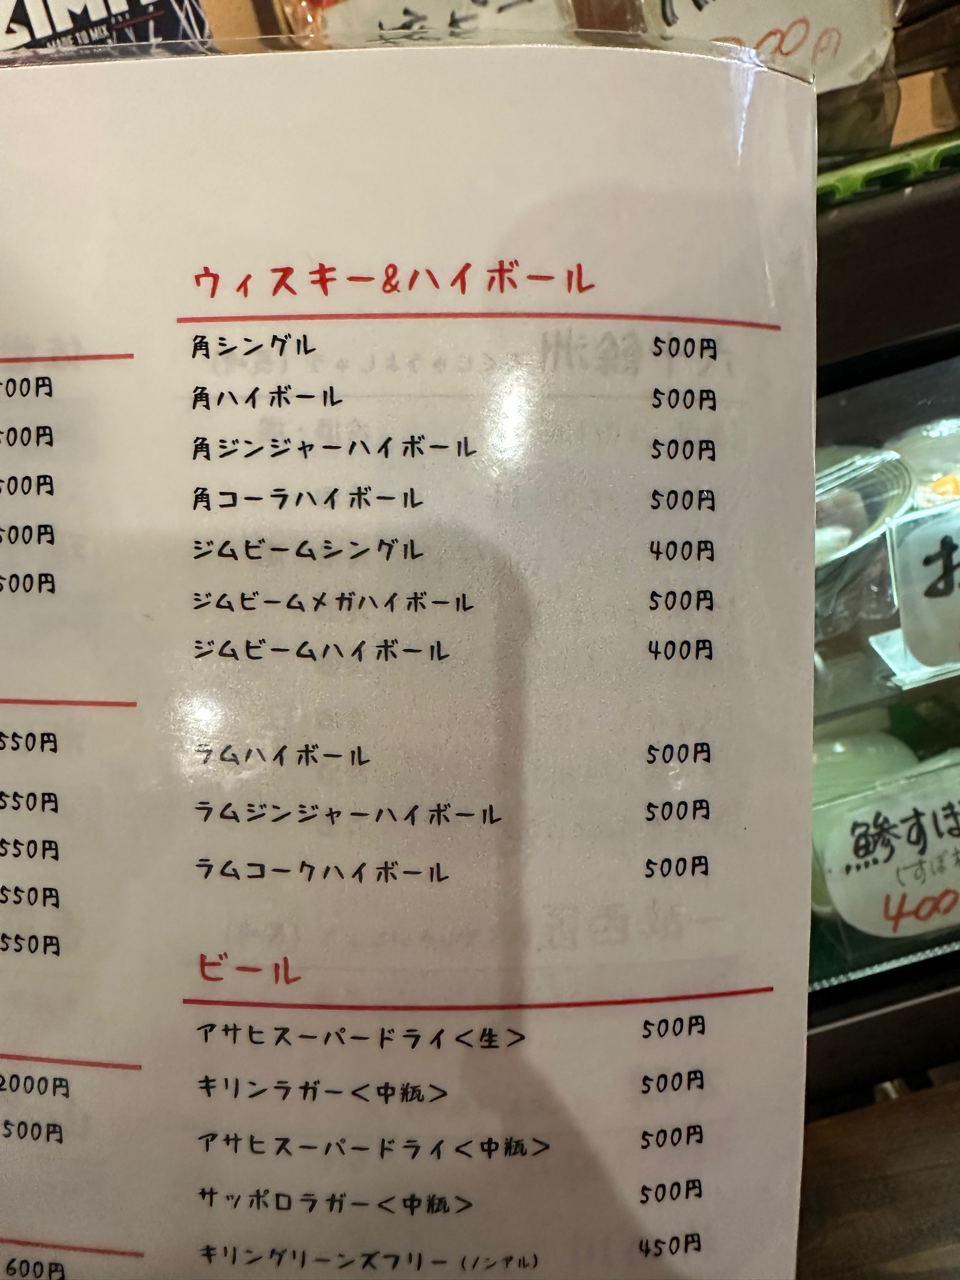 MADE TO MIX
00円
ウィスキー&ハイボール
角シングル 500円
角ハイボール 500円
角ジンジャーハイボール 500円
角コーラハイボール 500円
ジムビームシングル 400円
ジムビームメガハイボール 500円
ジムビームハイボール 400円
ラムハイボール 500円
ラムジンジャーハイボール 500円
ラムコークハイボール 500円
ビール
アサヒスーパードライ<生> 500円
キリンラガー<中瓶> 500円
アサヒスーパードライ<中瓶> 500円
サッポロラガー<中瓶> 500円
キリングリーンズフリー(ノンアル) 450円
500円
500円
500円
500円
500円
550円
550円
550円
550円
550円
2000円
500円
600円
お
鰺すぼ
(すぼ
400